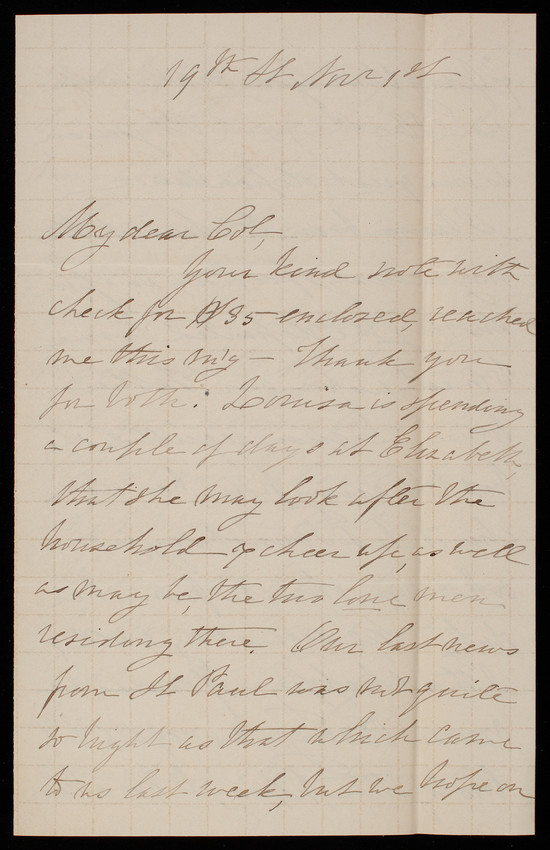 19th St Nov 1st
My dear Col,
Your kind note with
check for $35 enclosed, reached
me this m'g - Thank you
for both. Louisa is spending
a couple of days at Elizabeth,
that she may look after the
household & cheer up, as well
as may be, the two lone men
residing there. Our last news
from St Paul was not quite
so bright as that which came
to us last week, but we hope on